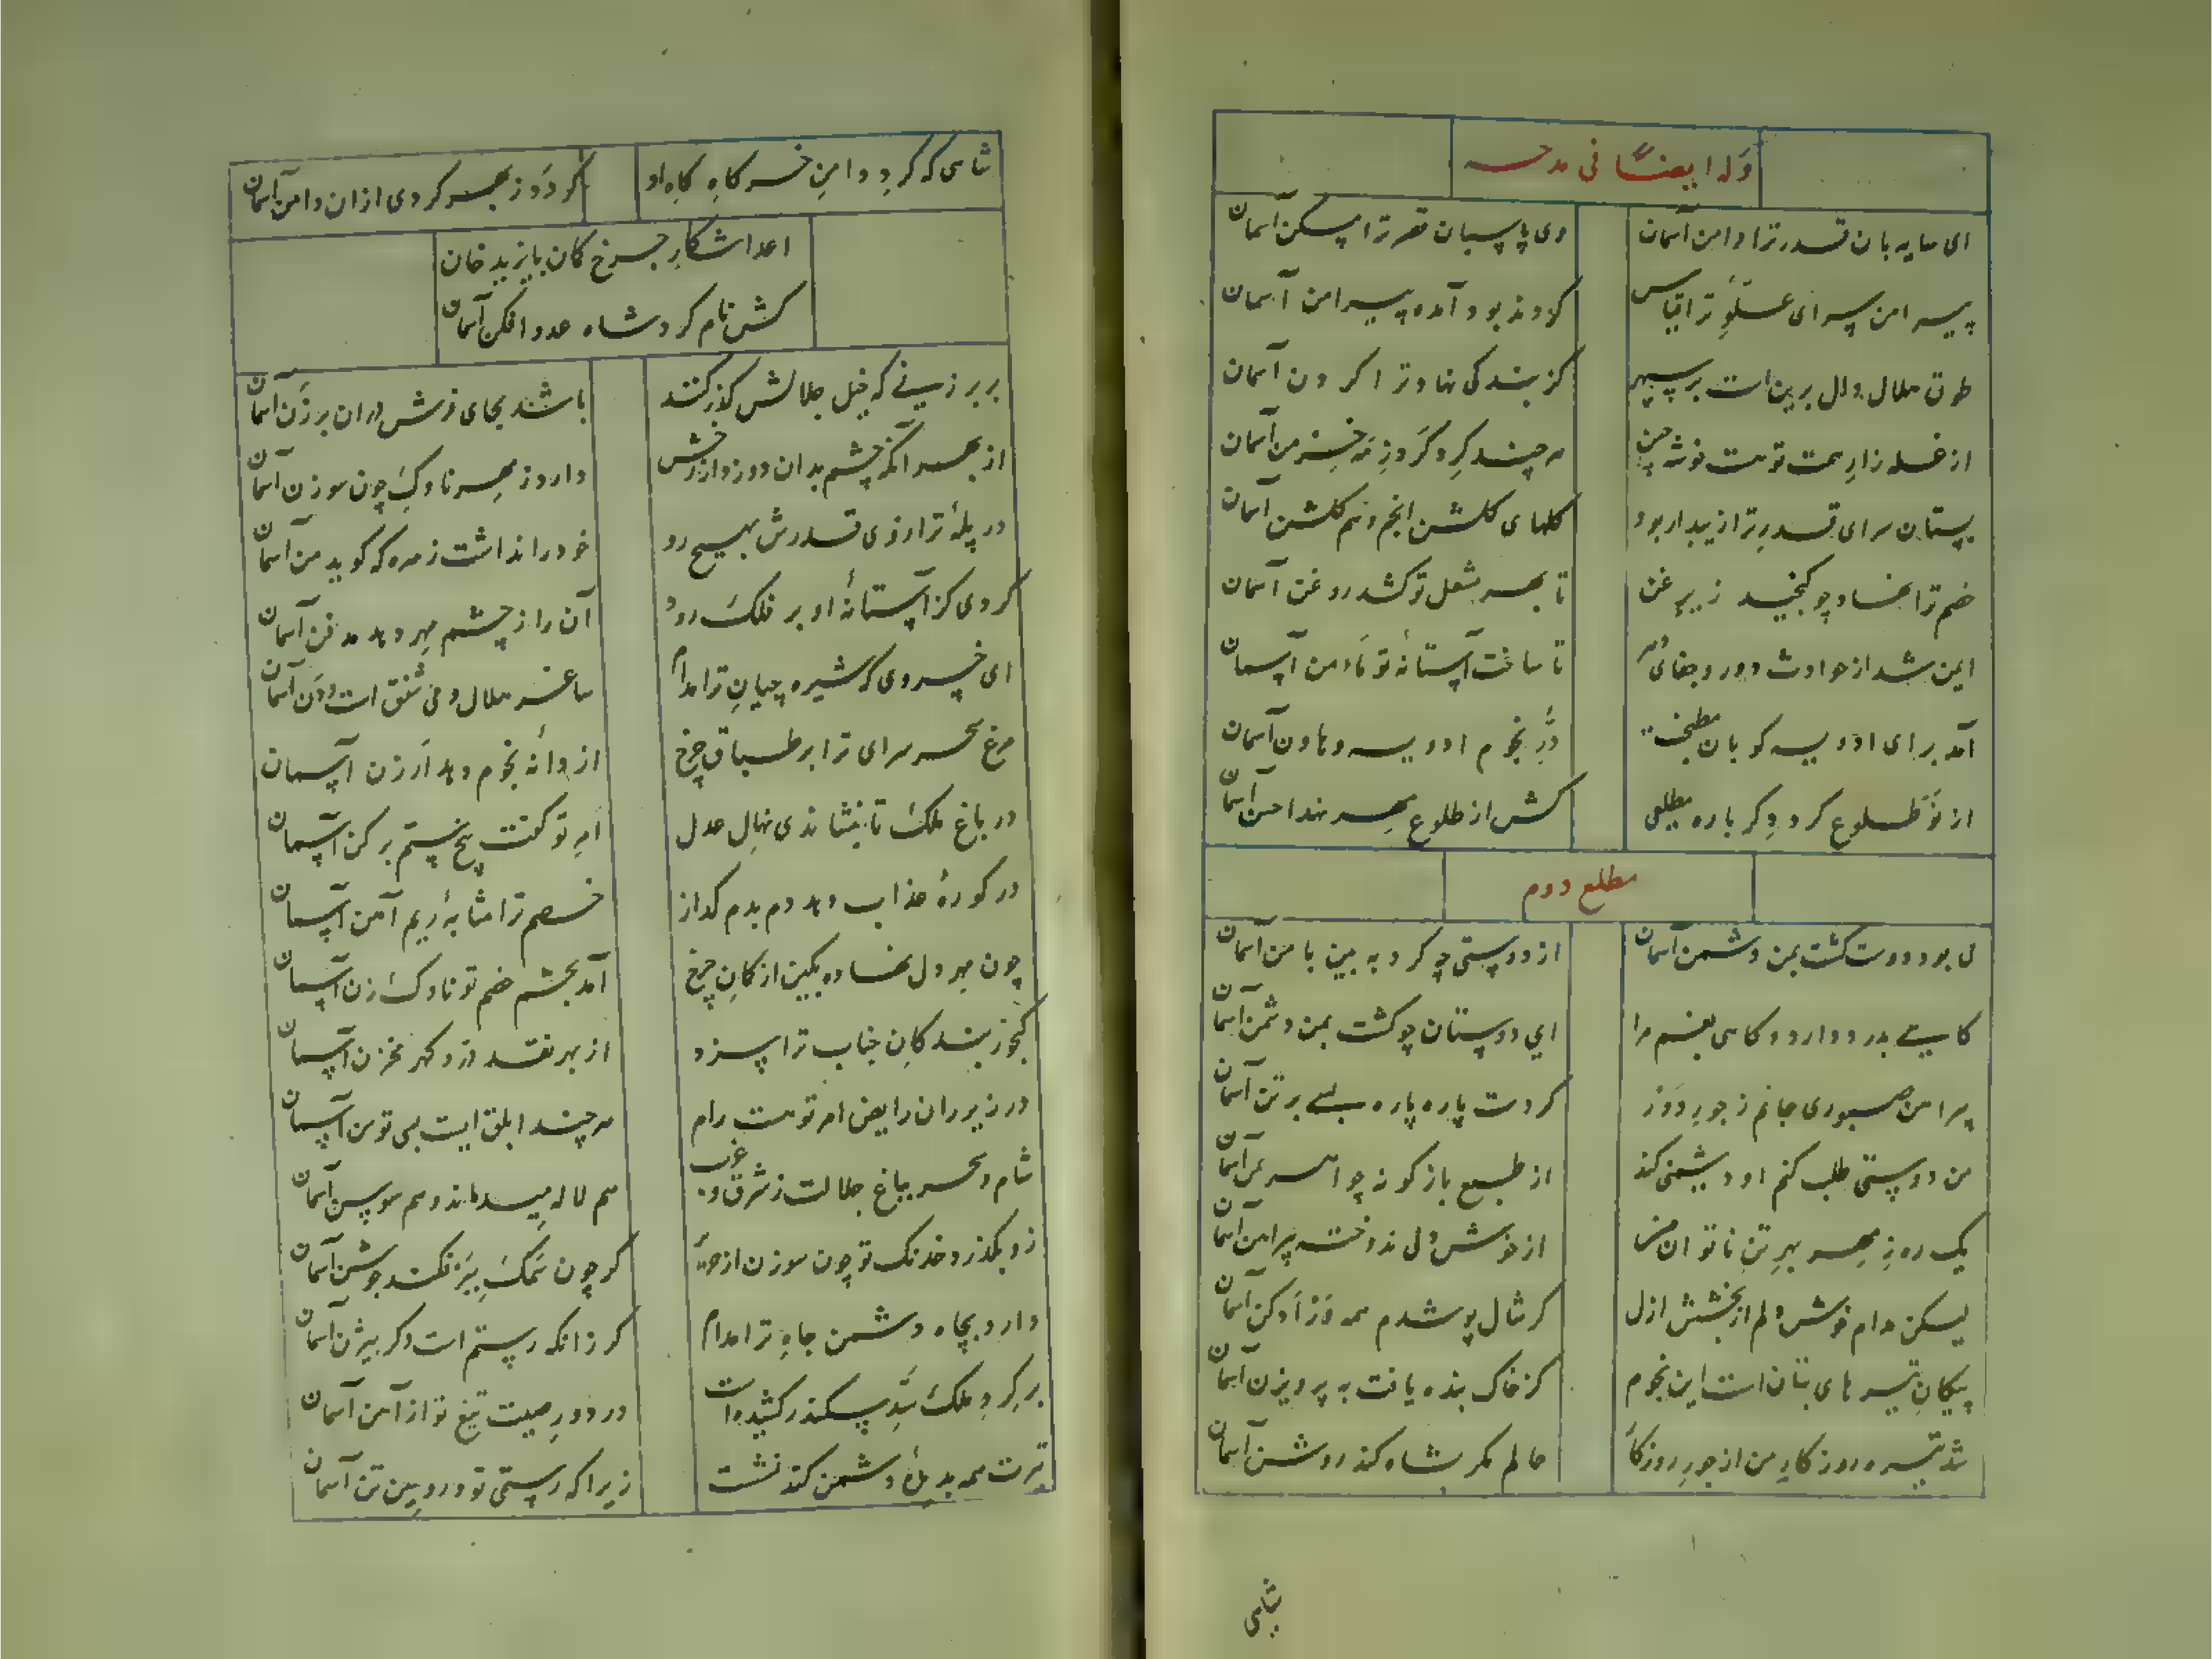 وله ایضًا فی مدحه
ای سایه بان قدر ترا دامن آسمان
وی پاسبان قصر ترا مسکن آسمان
پیرامن سرای علوِّ ترا قیاس
کردند بود آمده پیرامن آسمان
طوق هلال دال برین است بر سپهر
کز بندکی نهاد ترا کردن آسمان
از غله زارِ همت تو هست خوشه چین
هر چند کِرد کَرد زِ مَه خرمن آسمان
بستان سرای قدرِ ترا زیبد ار بود
کلهای کلشن انجم و هم کلشن آسمان
خصم ترا نهاد چو کنجید زیرِ غن
تا بهر مشعل تو کشد روغن آسمان
ایمن شد از حوادث دور و جفای دهر
تا ساخت آستانهٔ تو مأمن آسمان
آمد برای ادویه کوبان مطبخت
دُرِّ نجوم ادویه و هاون آسمان
از نَو طلوع کرد دِکر باره مطلعی
کش از طلوع مهر نهد احسن آسمان
مطلع دوم
بی بود دوست کشت بمن دشمن آسمان
از دوستی چه کرد به بین با من آسمان
کاهی بدرد دارد و کاهی بغم مرا
ای دوستان چو کشت بمن دشمن آسمان
پیراهن صبوری جانم ز جورِ دَور
کردست پاره پاره بسی بر تن آسمان
من دوستی طلب کنم او دشمنی کند
از طبع بازکونه چو اهریمن آسمان
یک ره زِ مهر بهرِ تن ناتوان من
از خوش دلی ندوخته پیراهن آسمان
لیکن مدام خوش دلم از بخشش ازل
کر شال پوشدم همه وَر اَدکن آسمان
پیکانِ تیرهای بتان است این نجوم
کز خاک بنده یافت به پرویزن آسمان
شد تیره روزکارِ من از جورِ روزکار
حالم مکر بشاه کند روشن آسمان
شاهی
شاهی که کردِ دامنِ خرکاهِ کاهِ او
کردَد ز بهر کردی ازان دامن آسمان
اعدا شکارِ چرخ کمان بایزید خان
کش نام کرد شاه عدو افکن آسمان
بر برزنی که خیل جلالش کذر کنند
باشد بجای فرش دران برزَن آسمان
از بهر آنکه چشم بدان دوزد از رخش
دارد ز مهر ناوکِ چون سوزن آسمان
در پلهٔ ترازوی قدرش بهیچ رو
خود را نداشت زهره که کوید من آسمان
کردی کز آستانهٔ او بر فلک رود
آن را ز چشم مهر دهد مدفن آسمان
ای خسروی که شیره چیانِ ترا مدام
ساغر هلال و می شفق است و دَن آسمان
مرغ سحر سرای ترا بر طباقِ چرخ
از دانهٔ نجوم دهد اَرزن آسمان
در باغ ملک تا بنشاندی نهالِ عدل
امرِ تو کفت بیخ ستم بر کن آسمان
در کورهٔ عذاب دهد دم بدم کداز
خصم ترا مثابهٔ ریم آهن آسمان
چون مهر دل نهاده بکین از کمانِ چرخ
آمد بچشم خصم تو ناوک زن آسمان
کنجور بندکانِ جناب ترا سزد
از بهر نقد دُر و کهر مخزن آسمان
در زیر ران رایض امر تو هست رام
هر چند ابلق است بسی توسن آسمان
شام و سحر بباغ جلالت ز شرق و غرب
هم لاله میدماند و هم سوسن آسمان
زو بکذرد خدنک تو چون سوزن از حریر
کر چون سَمَک بِبَر فکند جوشن آسمان
دارد بچاه دشمن جاهِ ترا مدام
کر زانکه رستم است و کر بیژن آسمان
بر کِردِ ملک سَدِّ سکندر کشیده است
در دورِ صیت تیغ تو از آهن آسمان
تیرت همه بدیدهٔ دشمن کند نشست
زیرا که رستمی تو و رویین تن آسمان